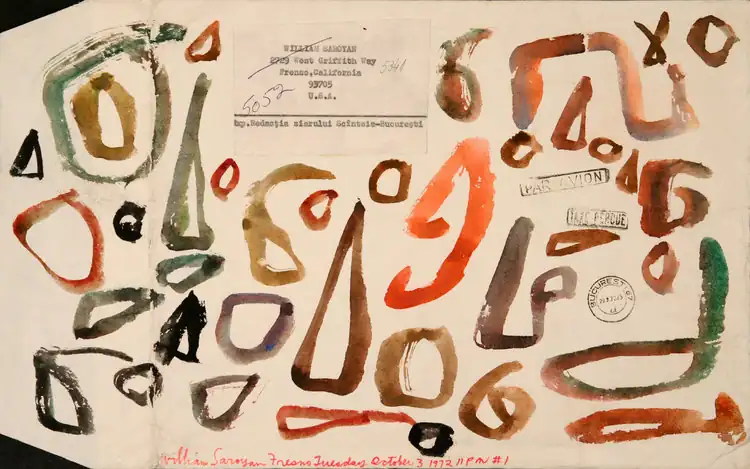 WILLIAM SAROYAN
2729 West Griffith Way 5341
Fresno,California
93705
5052 U.S.A.
Redactia ziarului Scînteia-Bucureşti
PAR AVION
TAXE PERCUE
BUCUREŞTI
William Saroyan Fresno Tuesday October 3 1972 11 PM #1